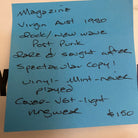 Magazine
Virgin Aust 1980
Rock/new wave
Post Punk
Rare & sought after
Spectacular copy!
Vinyl - Mint - never
played
Cover - VG+ - light
ringwear
$150